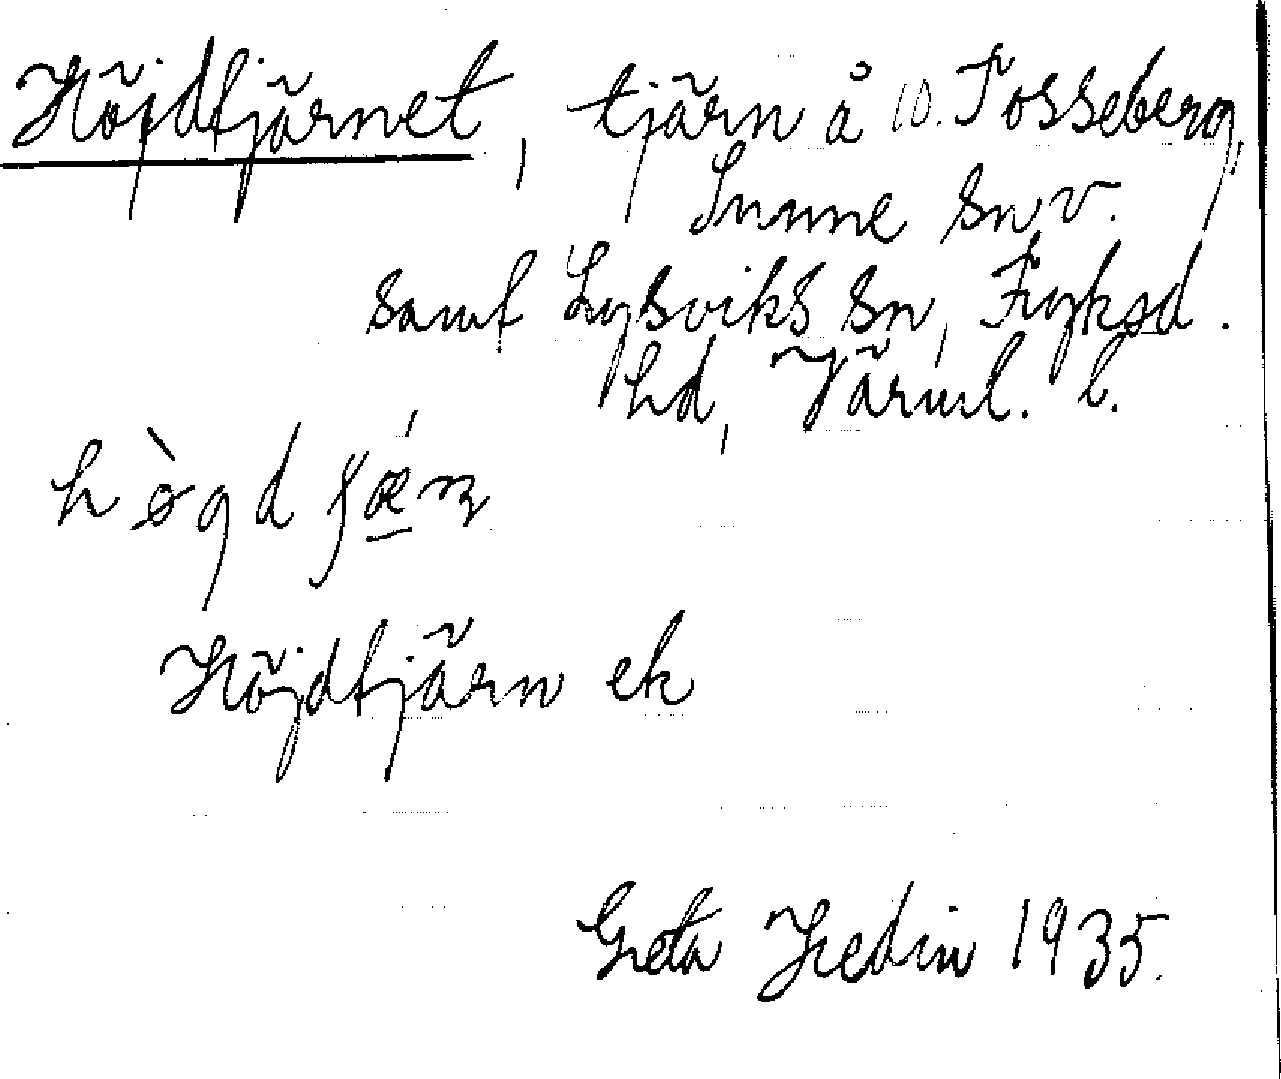 Höjdtjärnet, tjärn å 10. Tosseberg,
Sunne sn v.
samt Lysviks sn, Fryksd.
hd, Värml. l.
Höjdtjärn ek
Greta Hedin 1935.